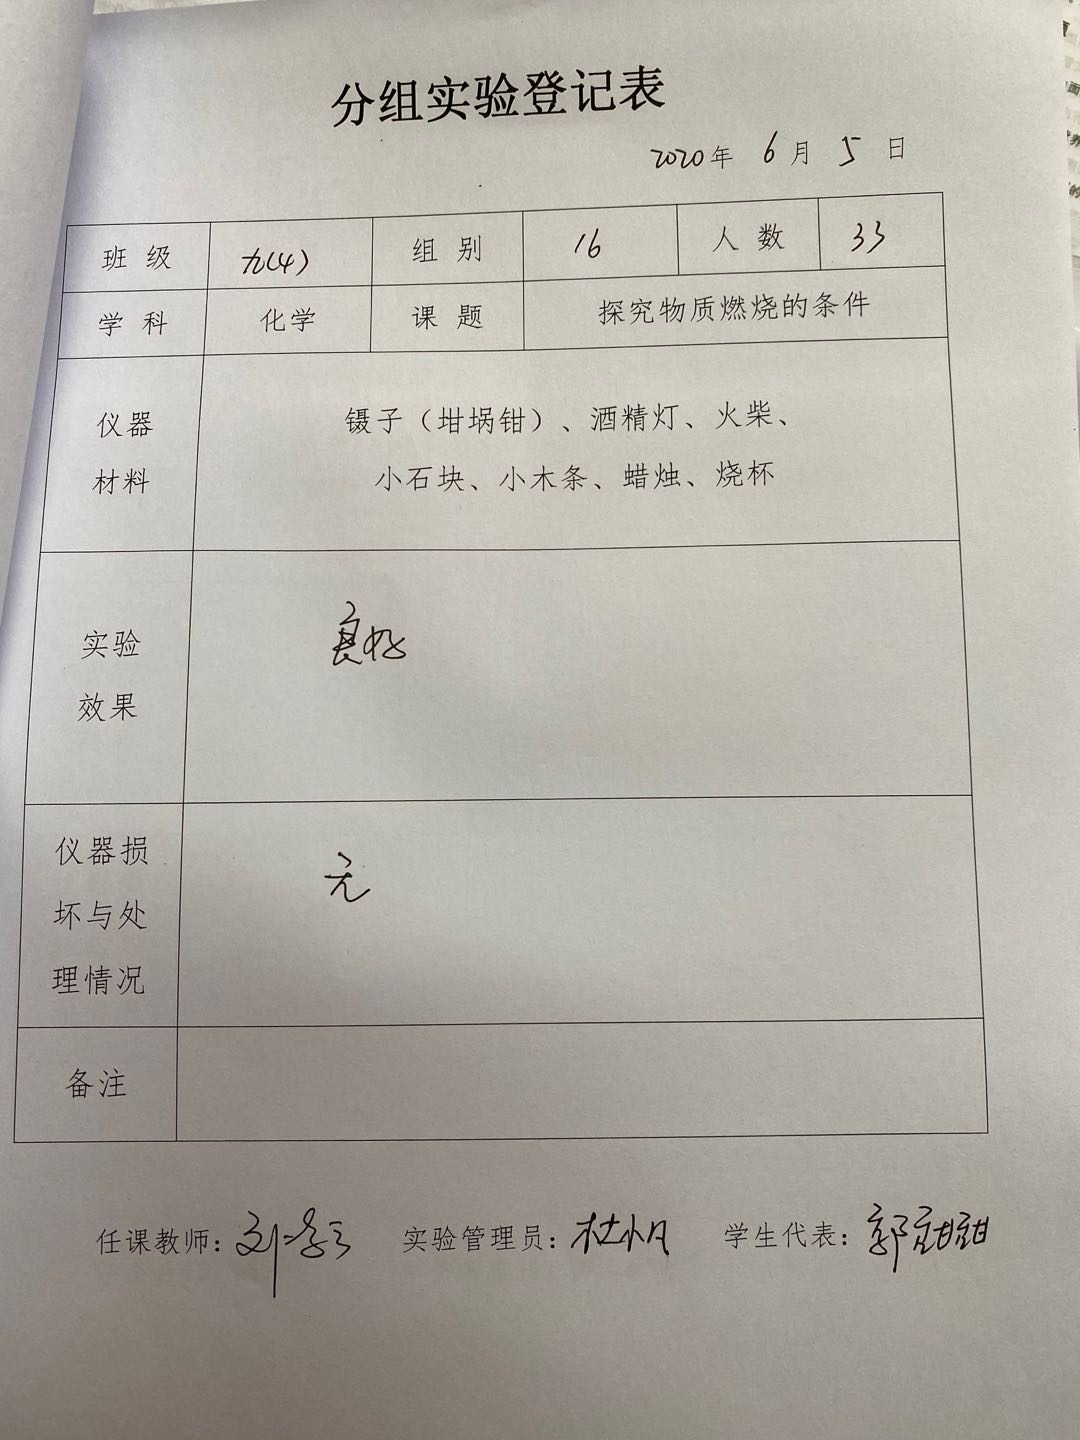 分组实验登记表
2020年 6 月 5 日
班 级 九(4) 组 别 16 人 数 33
学 科 化学 课 题 探究物质燃烧的条件
仪器
材料
镊子（坩埚钳）、酒精灯、火柴、
小石块、小木条、蜡烛、烧杯
实验
效果
良好
仪器损
坏与处
理情况
无
备注
任课教师： 实验管理员： 杜小凡 学生代表： 郭甜甜